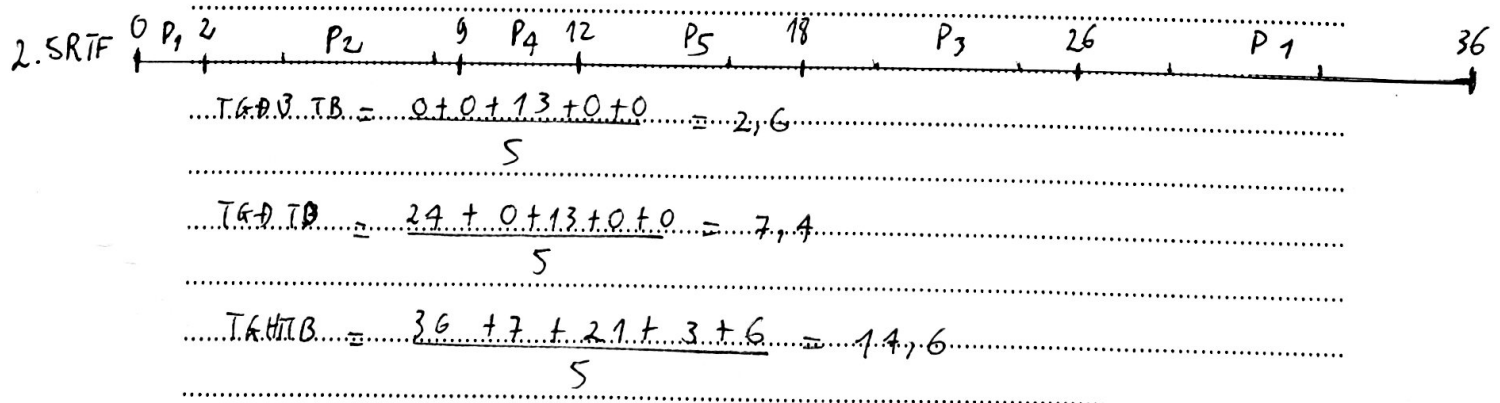 2. SRTF 0 P1 2 P2 9 P4 12 P5 18 P3 26 P1 36
TGĐƯ TB = 0+0+13+0+0 = 2,6
5
TGĐ TB = 24 + 0+13+0+0 = 7,4
5
TGHTTB = 36 + 7 + 21 + 3 + 6 = 14,6
5